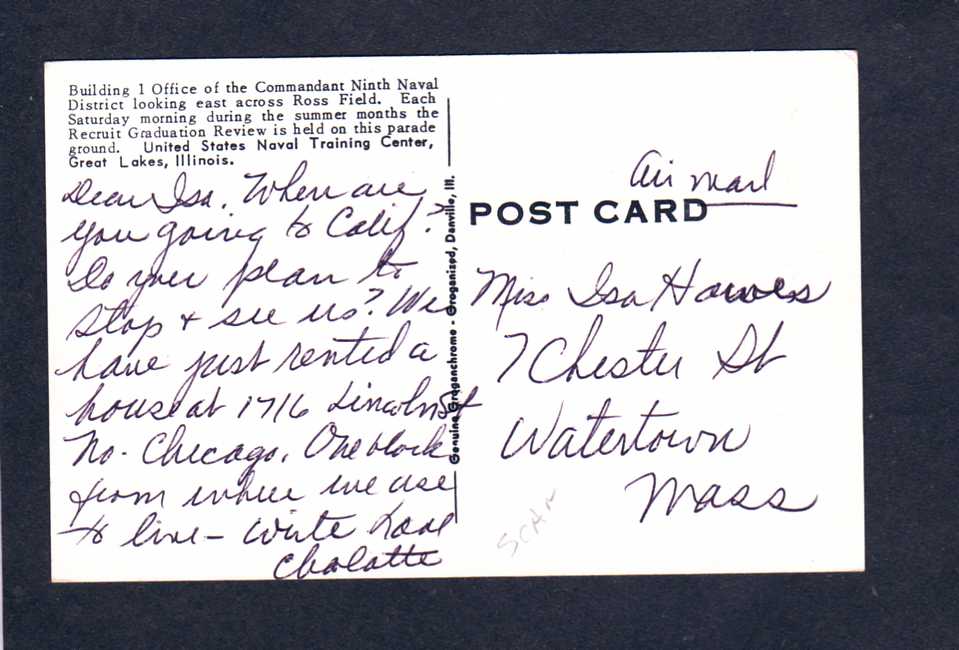 Building 1 Office of the Commandant Ninth Naval
District looking east across Ross Field. Each
Saturday morning during the summer months the
Recruit Graduation Review is held on this parade
ground. United States Naval Training Center,
Great Lakes, Illinois.
Dear Isa, When are
you going to Calif?
Do you plan to
stop + see us? We
have just rented a
house at 1716 Lincoln St
No. Chicago. One block
from where we use
to live - Write Love
Cholatte
Genuine Groganchrome - Groganized, Danville, Ill.
Air mail
POST CARD
Miss Isa Howes
7 Chester St
Watertown
Mass
SCAN